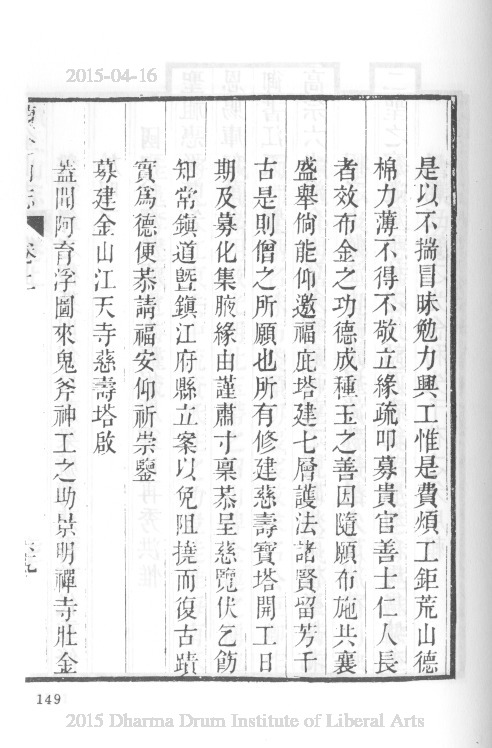 2015-04-16
是以不揣冒昧勉力興工惟是費煩工鉅荒山德
棉力薄不得不敬立緣疏叩募貴官善士仁人長
者效布金之功德成種玉之善因隨願布施共襄
盛舉倘能仰邀福庇塔建七層護法諸賢留芳千
古是則僧之所願也所有修建慈壽寶塔開工日
期及募化集腋緣由謹肅寸稟恭呈慈覽伏乞飭
知常鎮道暨鎮江府縣立案以免阻撓而復古蹟
實爲德便恭請福安仰祈崇鑒
募建金山江天寺慈壽塔啟
蓋聞阿育浮圖來鬼斧神工之助景明禪寺壯金
149
2015 Dharma Drum Institute of Liberal Arts